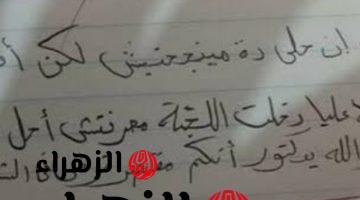 إن حلى دة مينجحنيش لكن أ
عليا دخلت اللجنة معرفتش أحل
الله يدكتور أنكم
الزهراء